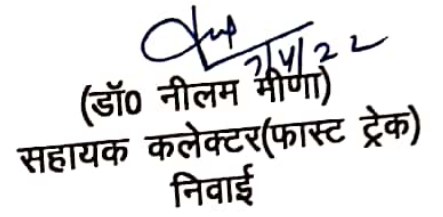 (डॉ0 नीलम मीणा)
सहायक कलेक्टर(फास्ट ट्रेक)
निवाई